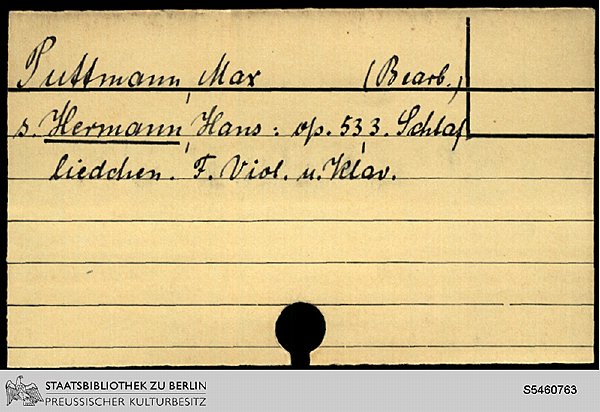 Puttmann, Max (Bearb.)
s. Hermann, Hans: op. 53,3. Schlaf
liedchen. F. Viol. u. Klav.
STAATSBIBLIOTHEK ZU BERLIN
PREUSSISCHER KULTURBESITZ
S5460763